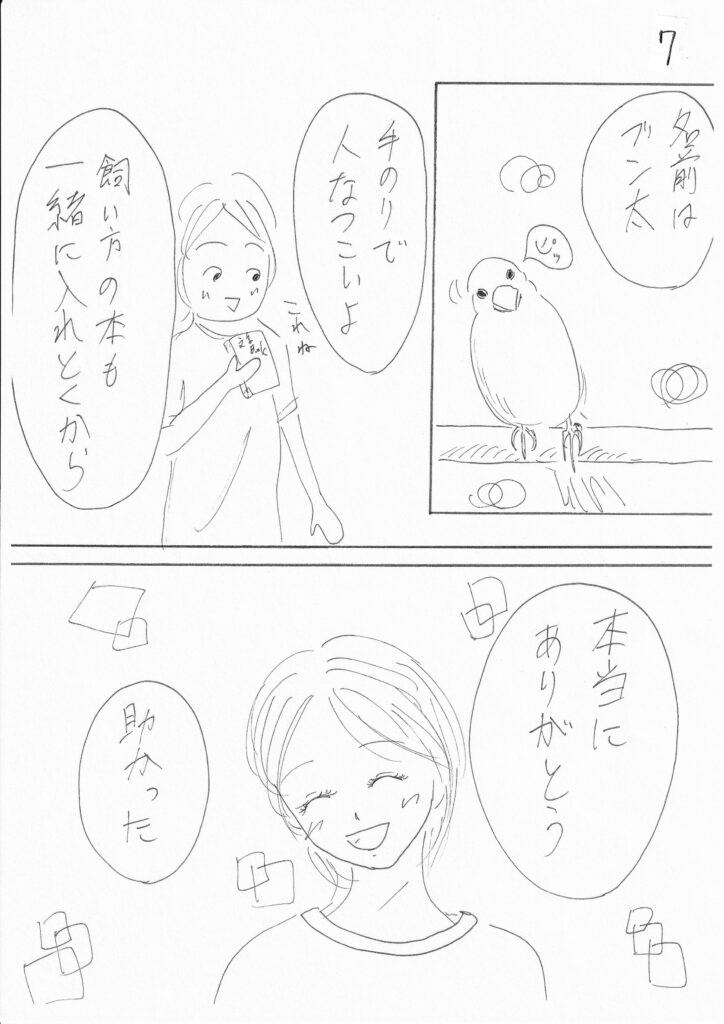 7
名前は
ブン太
ピッ
手のりで
人なつこいよ
これね
文鳥
Book
飼い方の本も
一緒に入れとくから
本当に
ありがとう
助かった